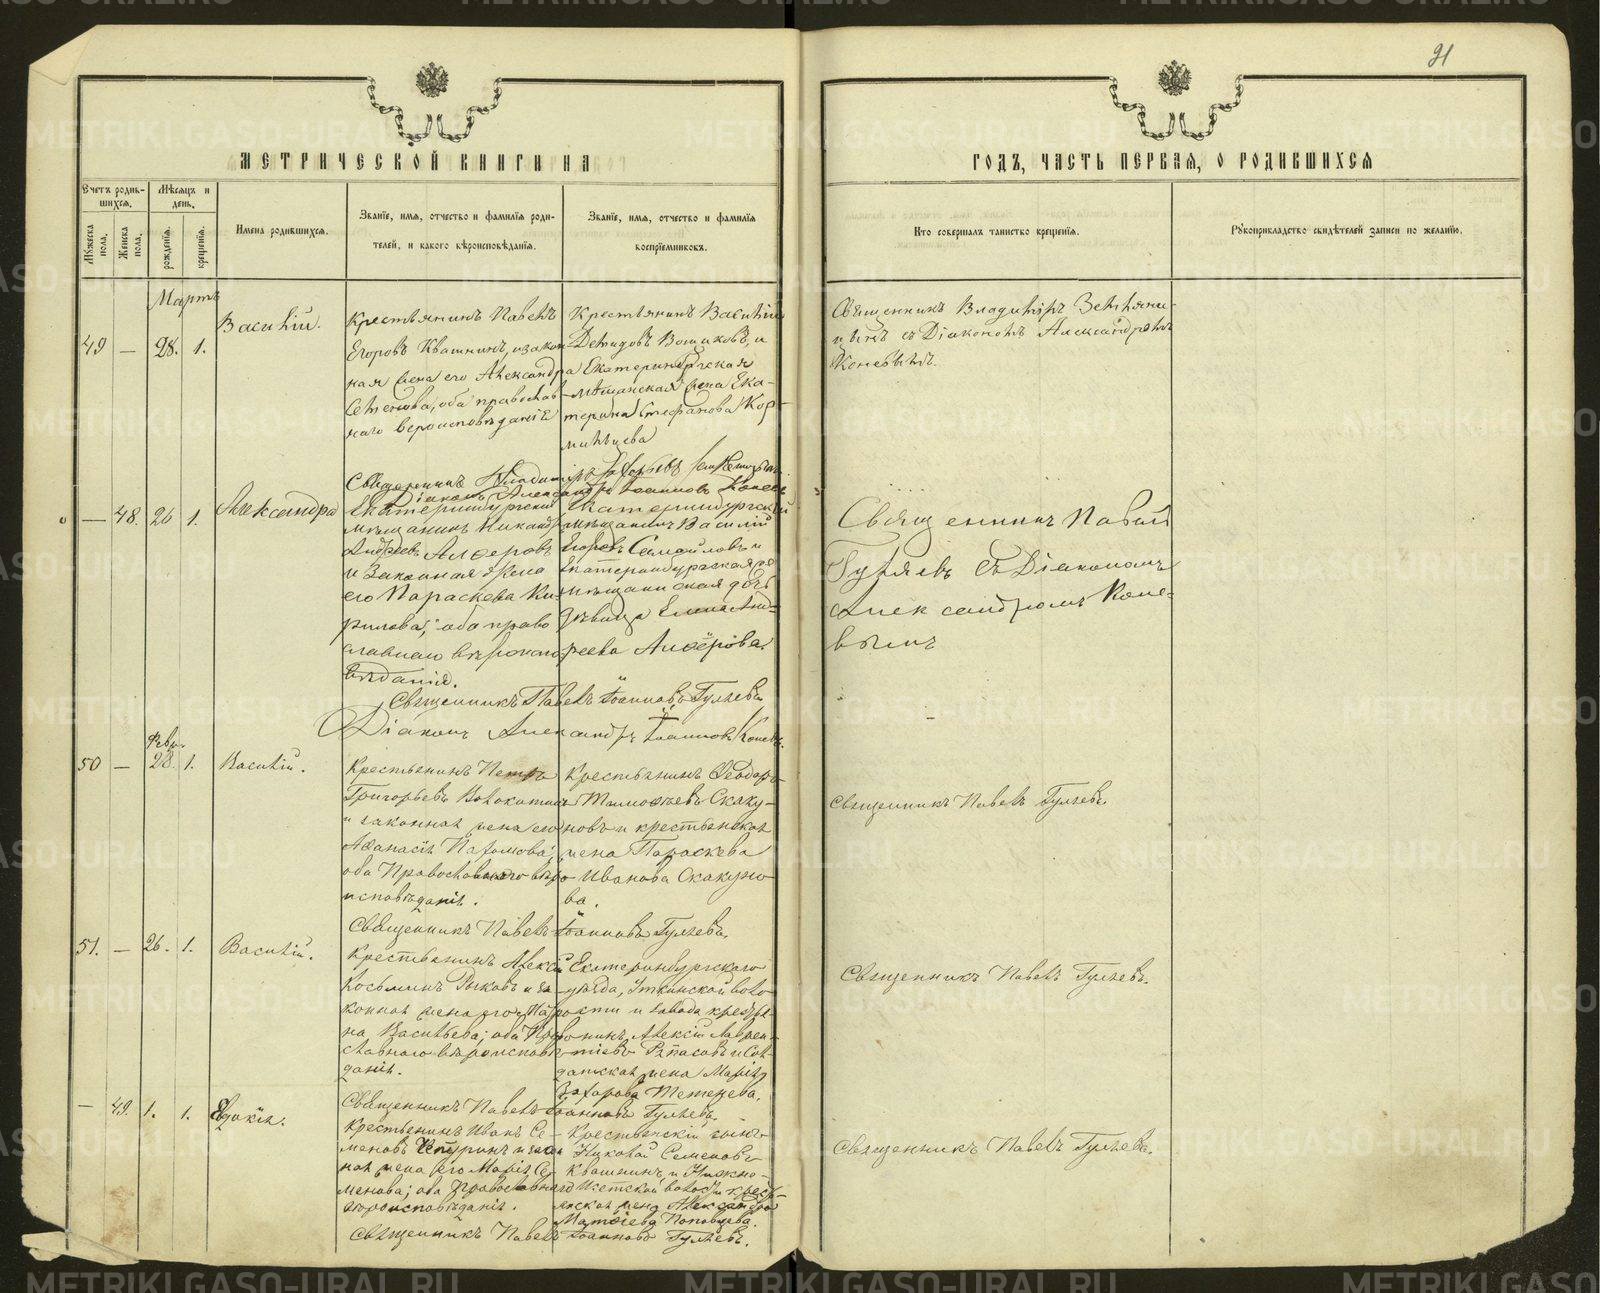 91
МЕТРИЧЕСКОЙ КНИГИ НА
ГОДЪ, ЧАСТЬ ПЕРВАЯ, О РОДИВШИХСЯ
Счетъ родив-
шихся.
Мѣсяцъ и
день.
Мужеска
пола.
Женска
пола.
рожденія.
крещенія.
Имена родившихся.
Званіе, имя, отчество и фамилія роди-
телей, и какого вѣроисповѣданія.
Званіе, имя, отчество и фамилія
воспріемниковъ.
Кто совершалъ таинство крещенія.
Рукоприкладство свидѣтелей записи по желанію.
Мартъ
49 — 28. 1.
Василій.
Крестьянинъ Павелъ
Егоровъ Квашнинъ, и закон-
ная жена его Александра
Семенова, оба православ-
наго вероисповѣданія
Крестьянинъ Василій
Демидовъ Вошиковъ, и
Екатеринбургская
мѣщанская жена Ека-
терина Стефанова Кор-
мильцева
Священникъ Владиміръ Земляни-
цынъ съ Діакономъ Александромъ
Коневымъ.
Священникъ Владиміръ
Діаконъ Александръ Іоанновъ Коневъ
— 48. 26 1.
Александра
Екатеринбургскій
мѣщанинъ Никандръ
Андреевъ Алферовъ
и Законная жена
его Параскева Ки-
рилова; оба право
славнаго вѣроиспо
вѣданія.
Екатеринбургскій
мѣщанинъ Василій
Егоровъ Самойловъ и
Екатеринбургская
мѣщанская дочь
дѣвица Елена Анд-
реева Алферова.
Священникъ Павелъ
Гуляевъ съ Діакономъ
Александромъ Коне-
вымъ
Священникъ Павелъ Іоанновъ Гуляевъ
Діаконъ Александръ Іоанновъ Коневъ.
Февр.
50 — 28. 1.
Василій.
Крестьянинъ Петръ
Григорьевъ Волокитинъ
и законная жена его
Афанасія Пахомова;
оба Православнаго вѣро-
исповѣданія.
Крестьянинъ Феодоръ
Тимофеевъ Скаку-
новъ и крестьянская
жена Параскева
Иванова Скакуно
ва.
Священникъ Павелъ Гуляевъ.
Священникъ Павелъ Іоанновъ Гуляевъ.
51. — 26. 1.
Василій.
Крестьянинъ Алексѣй
Косьминъ Рыковъ и за-
конная жена его
на Васильева; оба Пра-
вославнаго вѣроисповѣ
данія.
Екатеринбургскаго
уѣзда, Уткинской воло
сти и завода крестья
нинъ Алексій Лаврен-
тіевъ и Сол-
датская жена Марія
Захарова Тетенева.
Священникъ Павелъ Гуляевъ.
Священникъ Павелъ Іоанновъ Гуляевъ.
— 49. 1. 1.
Евдокія.
Крестьянинъ Иванъ Се-
меновъ Чепуринъ и закон
ная жена его Марія Се-
менова; оба Православнаго
вѣроисповѣданія.
Крестьянскій сынъ
Николай Семеновъ
Квашнинъ, и Нижно-
Исетской волости кресть-
янская жена Александра
Матфіева Поповцева.
Священникъ Павелъ Гуляевъ.
Священникъ Павелъ Іоанновъ Гуляевъ.
METRIKI.GASO-URAL.RU